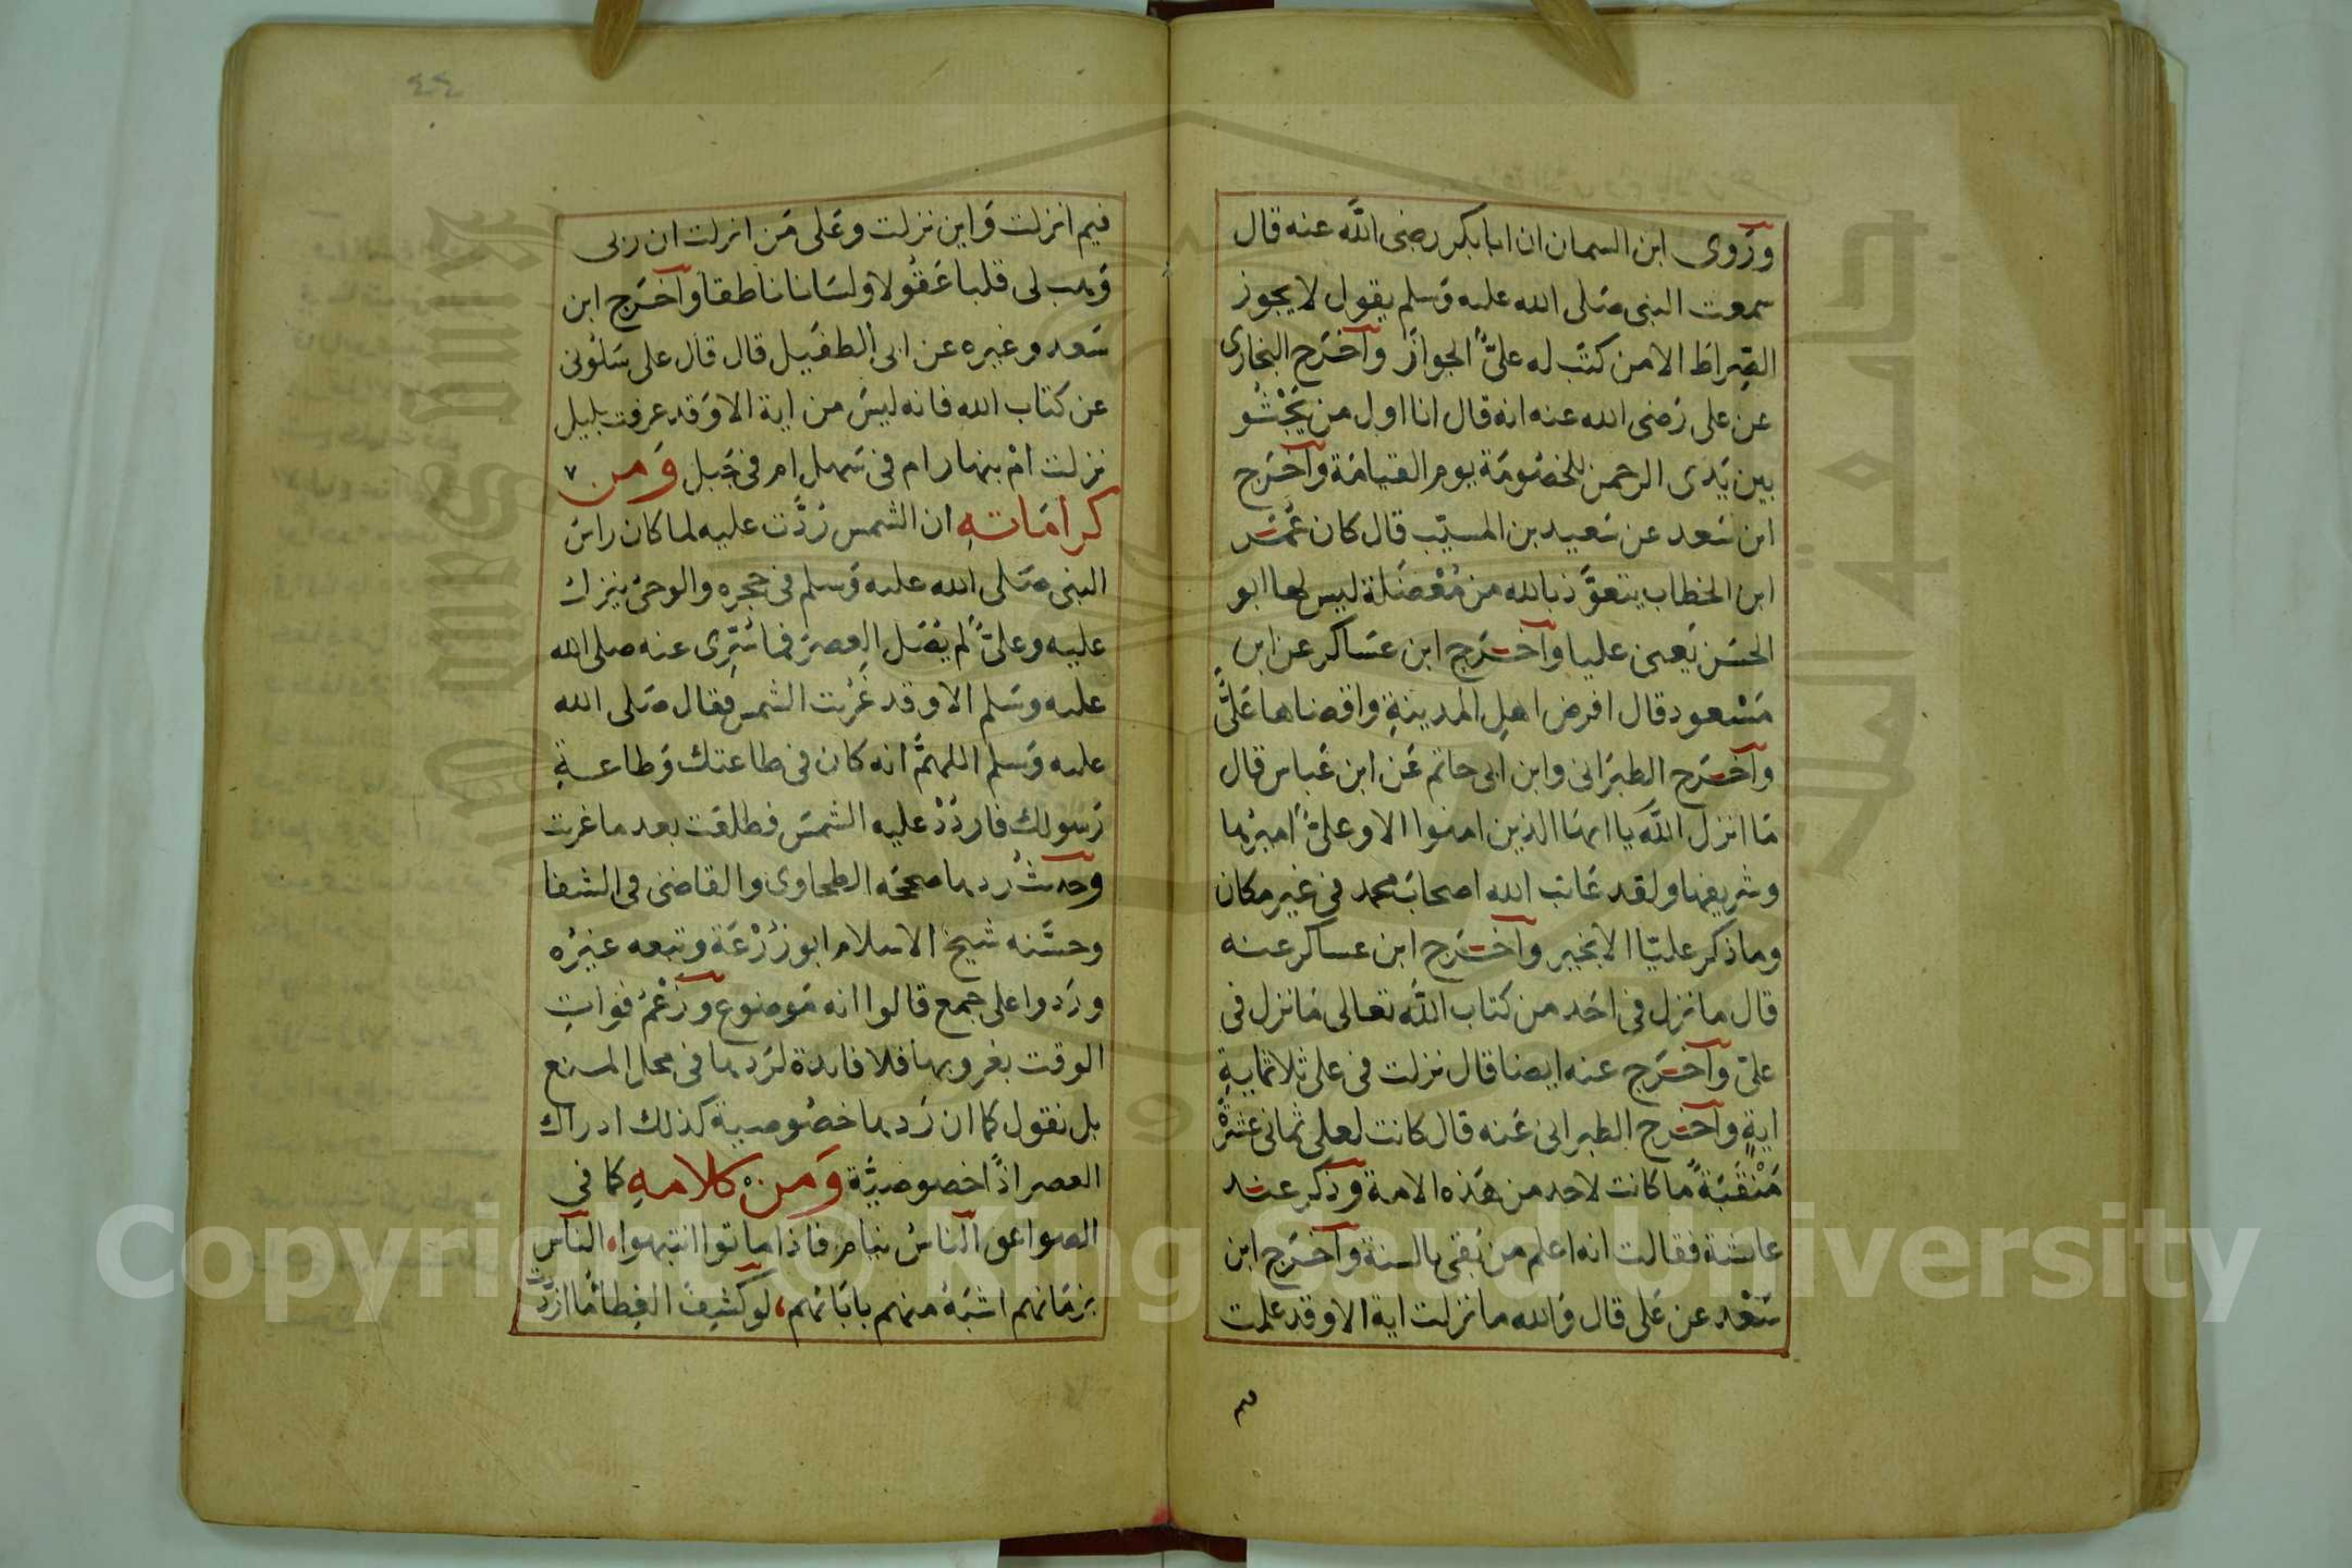 وروى ابن السمان ان ابا بكر رضى الله عنه قال
سمعت النبى صلى الله عليه وسلم يقول لا يجوز
الصراط الا من كتب له علىٌّ الجواز وآخرج البخارى
عن على رضى الله عنه انه قال انا اول من يَجْثُو
بين يدى الرحمن للخصومة يوم القيامة وآخرج
ابن سعد عن سعيد بن المسيّب قال كان عمر
ابن الخطاب يتعوّذ بالله من مُعْضلة ليس لها ابو
الحسن يعنى عليا وآخرج ابن عساكر عن ابن
مسْعود قال افرض اهل المدينةِ واقضاها علىٌّ
وآخرج الطبرانى وابن ابى حاتم عن ابن عباس قال
ما انزل الله يا ايها الذين امنوا الا وعلىٌّ اميرها
وشريفها ولقد عاتب الله اصحاب محمد فى غير مكان
وما ذكر عليّا الا بخير وآخرج ابن عساكر عنه
قال ما نزل فى احد من كتاب الله تعالى ما نزل فى
علىّ وآخرج عنه ايضا قال نزلت فى على ثلاثمايةِ
ايةٍ وآخرج الطبرانى عنه قال كانت لعلى ثمانى عشرة
مَنْقَبَةً ما كانت لاحد من هذه الامة وذكر عند
عائشة فقالت انه اعلم من بقى بالسنة وآخرج ابن
سَعْد عن على قال والله ما نزلت اية الا وقد علمت
٤٤
فيم انزلت واين نزلت وعلى من انزلت ان ربى
وهب لى قلبا عقولا ولسانا ناطقا وآخرج ابن
سعد وغيره عن ابى الطفيل قال قال على سَلُونى
عن كتاب الله فانه ليس من اية الا وقد عرفت بليل
نزلت امْ بنهار ام فى سهل ام فى جبل وَمن ٧
كراماتهِ ان الشمس رُدَّت عليه لما كان راس
النبى صلى الله عليه وسلم فى حجره والوحى ينزل
عليه وعلىٌّ لم يصل العصر فما سُرِّى عنه صلى الله
عليه وسلم الا وقد غربت الشمس فقال صلى الله
عليه وسلم اللهمَّ انه كان فى طاعتك وطاعةِ
رسولك فاردُدْ عليه الشمس فطلعت بعد ما غربت
وحديث ردها صححه الطحاوى والقاضى فى الشفا
وحسَّنه شيخ الاسلام ابو زُرْعَة وتبعه غيره
وردوا على جمع قالوا انه موضوع وزعْمُ فواتِ
الوقت بغروبها فلا فائدة لردها فى محل المنع
بل نقول كما ان ردها خصُوصية كذلك ادراك
العصر اذًا خصوصيّة وَمن كلامهِ كما فى
الصواعق الناسُ نيام فاذا ماتوا انتبهوا، الناس
بزمانهم اشبَهُ منهم بابائهم، لو كشِفَ الغِطا ما ازددت
Copyright © King Saud University